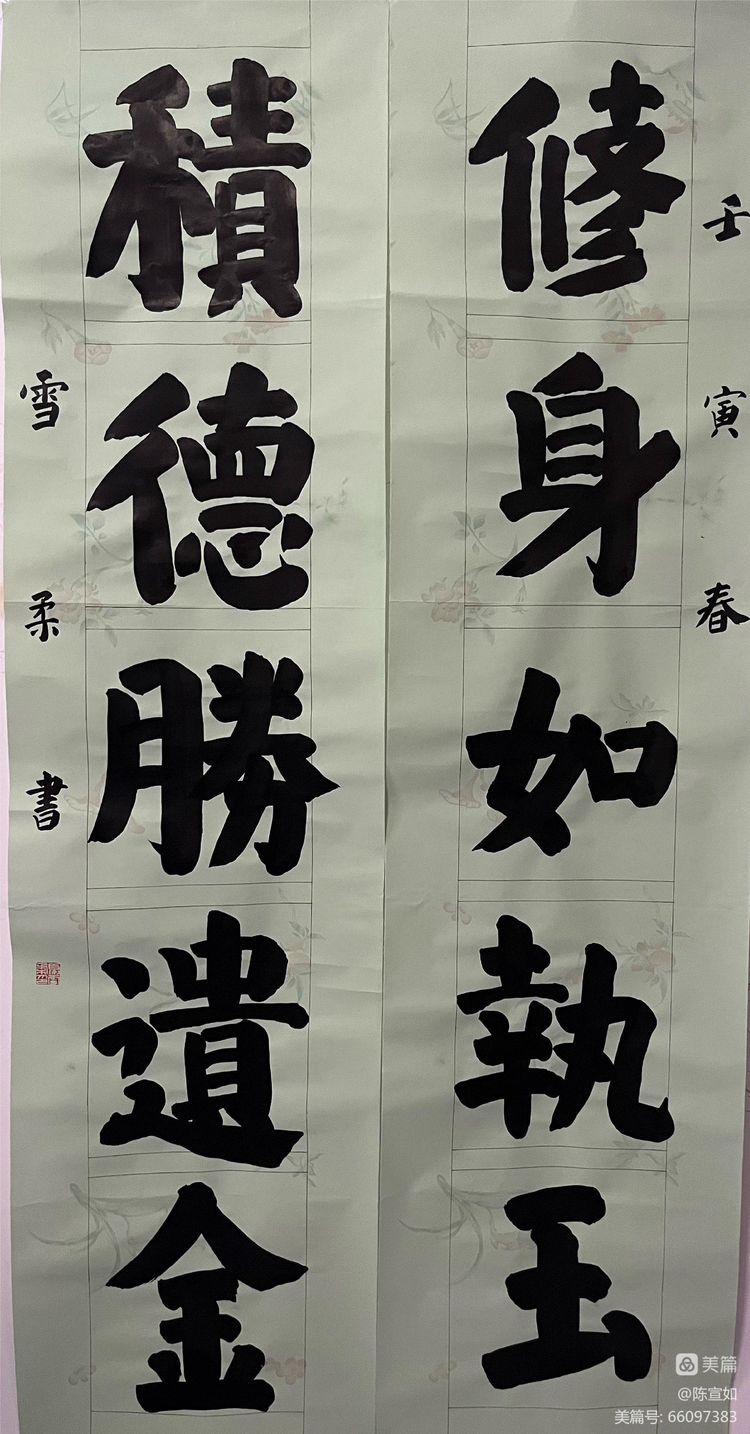 壬寅春
修身如執玉
積德勝遺金
雪柔書
美篇
@陈宣如
美篇号: 66097383